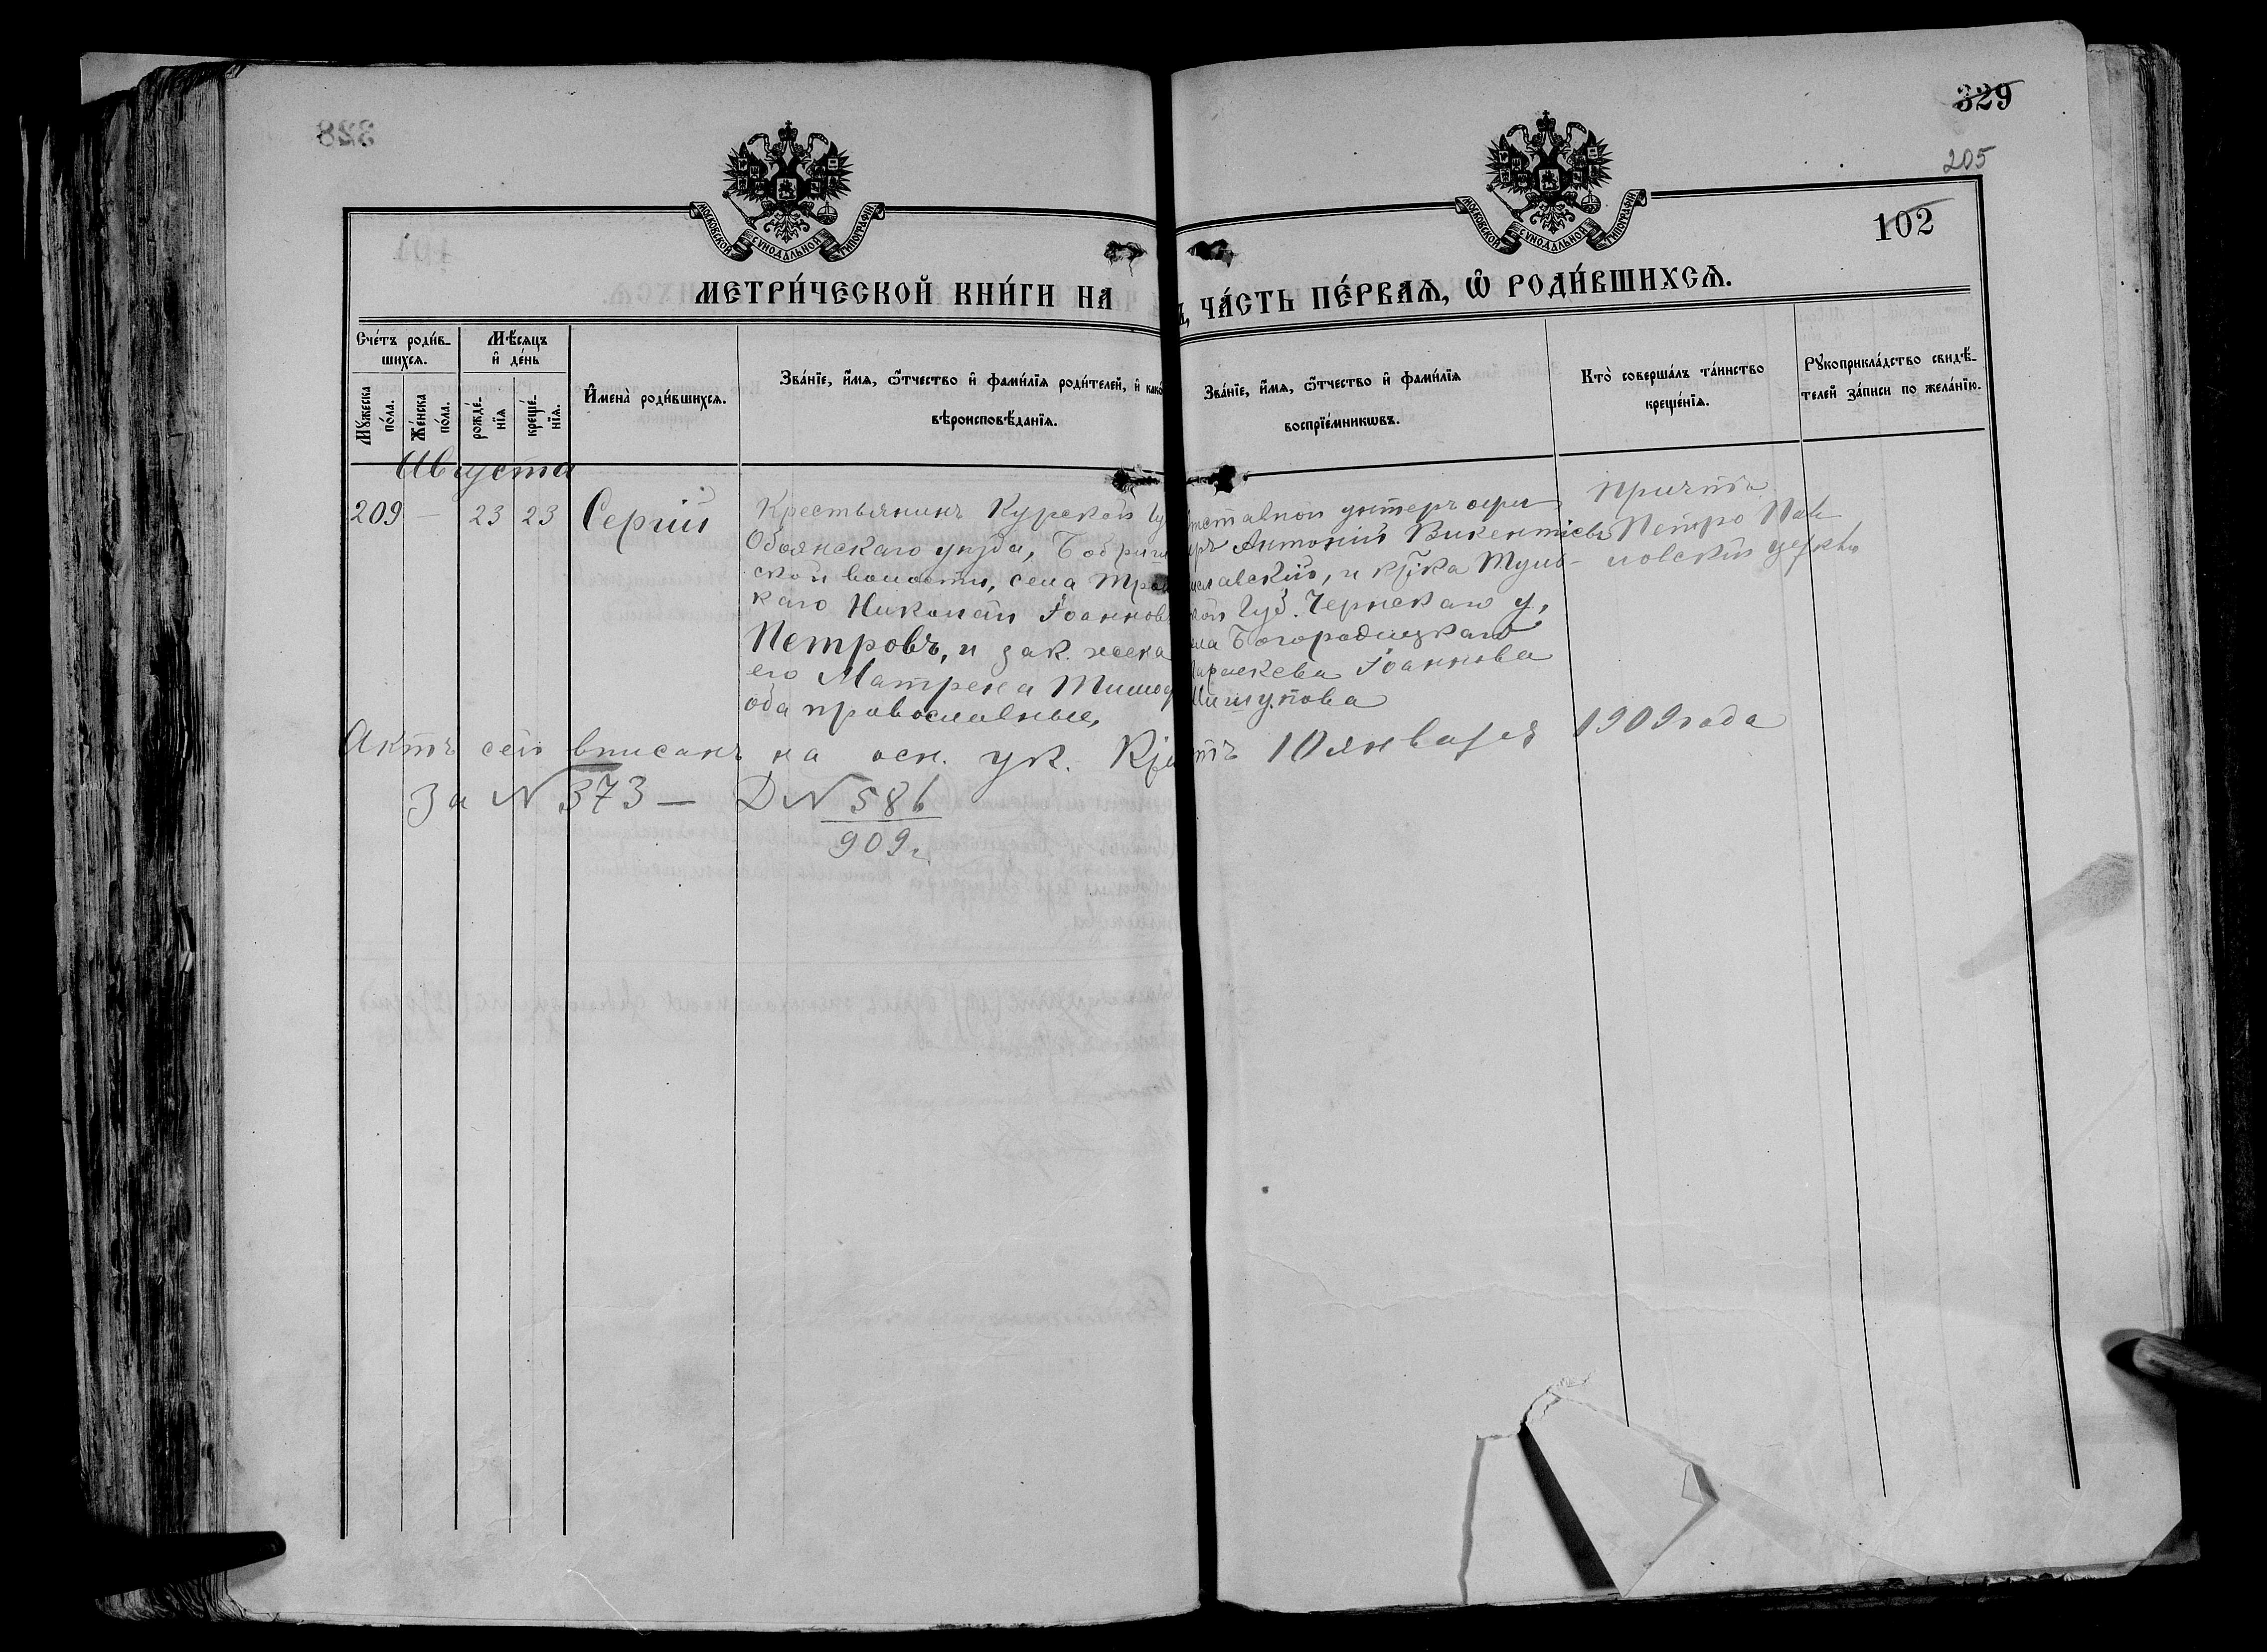 329
205
102
МОСКОВСКОЙ СѴНОДАЛЬНОЙ ТИПОГРАФІИ
МОСКОВСКОЙ СѴНОДАЛЬНОЙ ТИПОГРАФІИ
МЕТРИ́ЧЕСКОЙ КНИ́ГИ НА
Ъ, ЧА́СТЬ ПЕ́РВАЯ, Ѡ РОДИ́ВШИХСЯ.
Сче́тъ роди́в-
шихся.
Мꙋ́жеска по́ла.
Же́нска по́ла.
Мѣ́сяцъ
и де́нь
рожде́-
нїя
креще́-
нїя.
И҆мена̀ роди́вшихся.
Зва́нїе, и҆́мя, ѻ҆́тчество и҆ фами́лїя роди́телей, и҆ како
вѣроисповѣ́данїя.
Зва́нїе, и҆́мя, ѻ҆́тчество и҆ фами́лїя
воспрїе́мникωвъ.
Кто̀ соверша́лъ та́инство
креще́нїя.
Рꙋкоприкла́дство свидѣ́-
телей за́писи по жела́нїю.
Августа
209 — 23 23 Сергій
Крестьянинъ Курской гу
Обоянскаго уѣзда, Бобрыш
ской волости, села Трои
каго Николай Іоанновъ
Петровъ, и зак. жена
его Матрена Тимоф
оба православные,
тставной унтеръ офи
ръ Антоній Викентіевъ
славскій, и кр̃ка Туль-
кой губ. Чернскаго у,
ла Богородицкаго
араскева Іоаннова
Причтъ
Петро Пав
ловской церкви
Актъ сей вписанъ на осн. ук. тъ 10 января 1909 года
За № 373 — Д № 586
909 г.